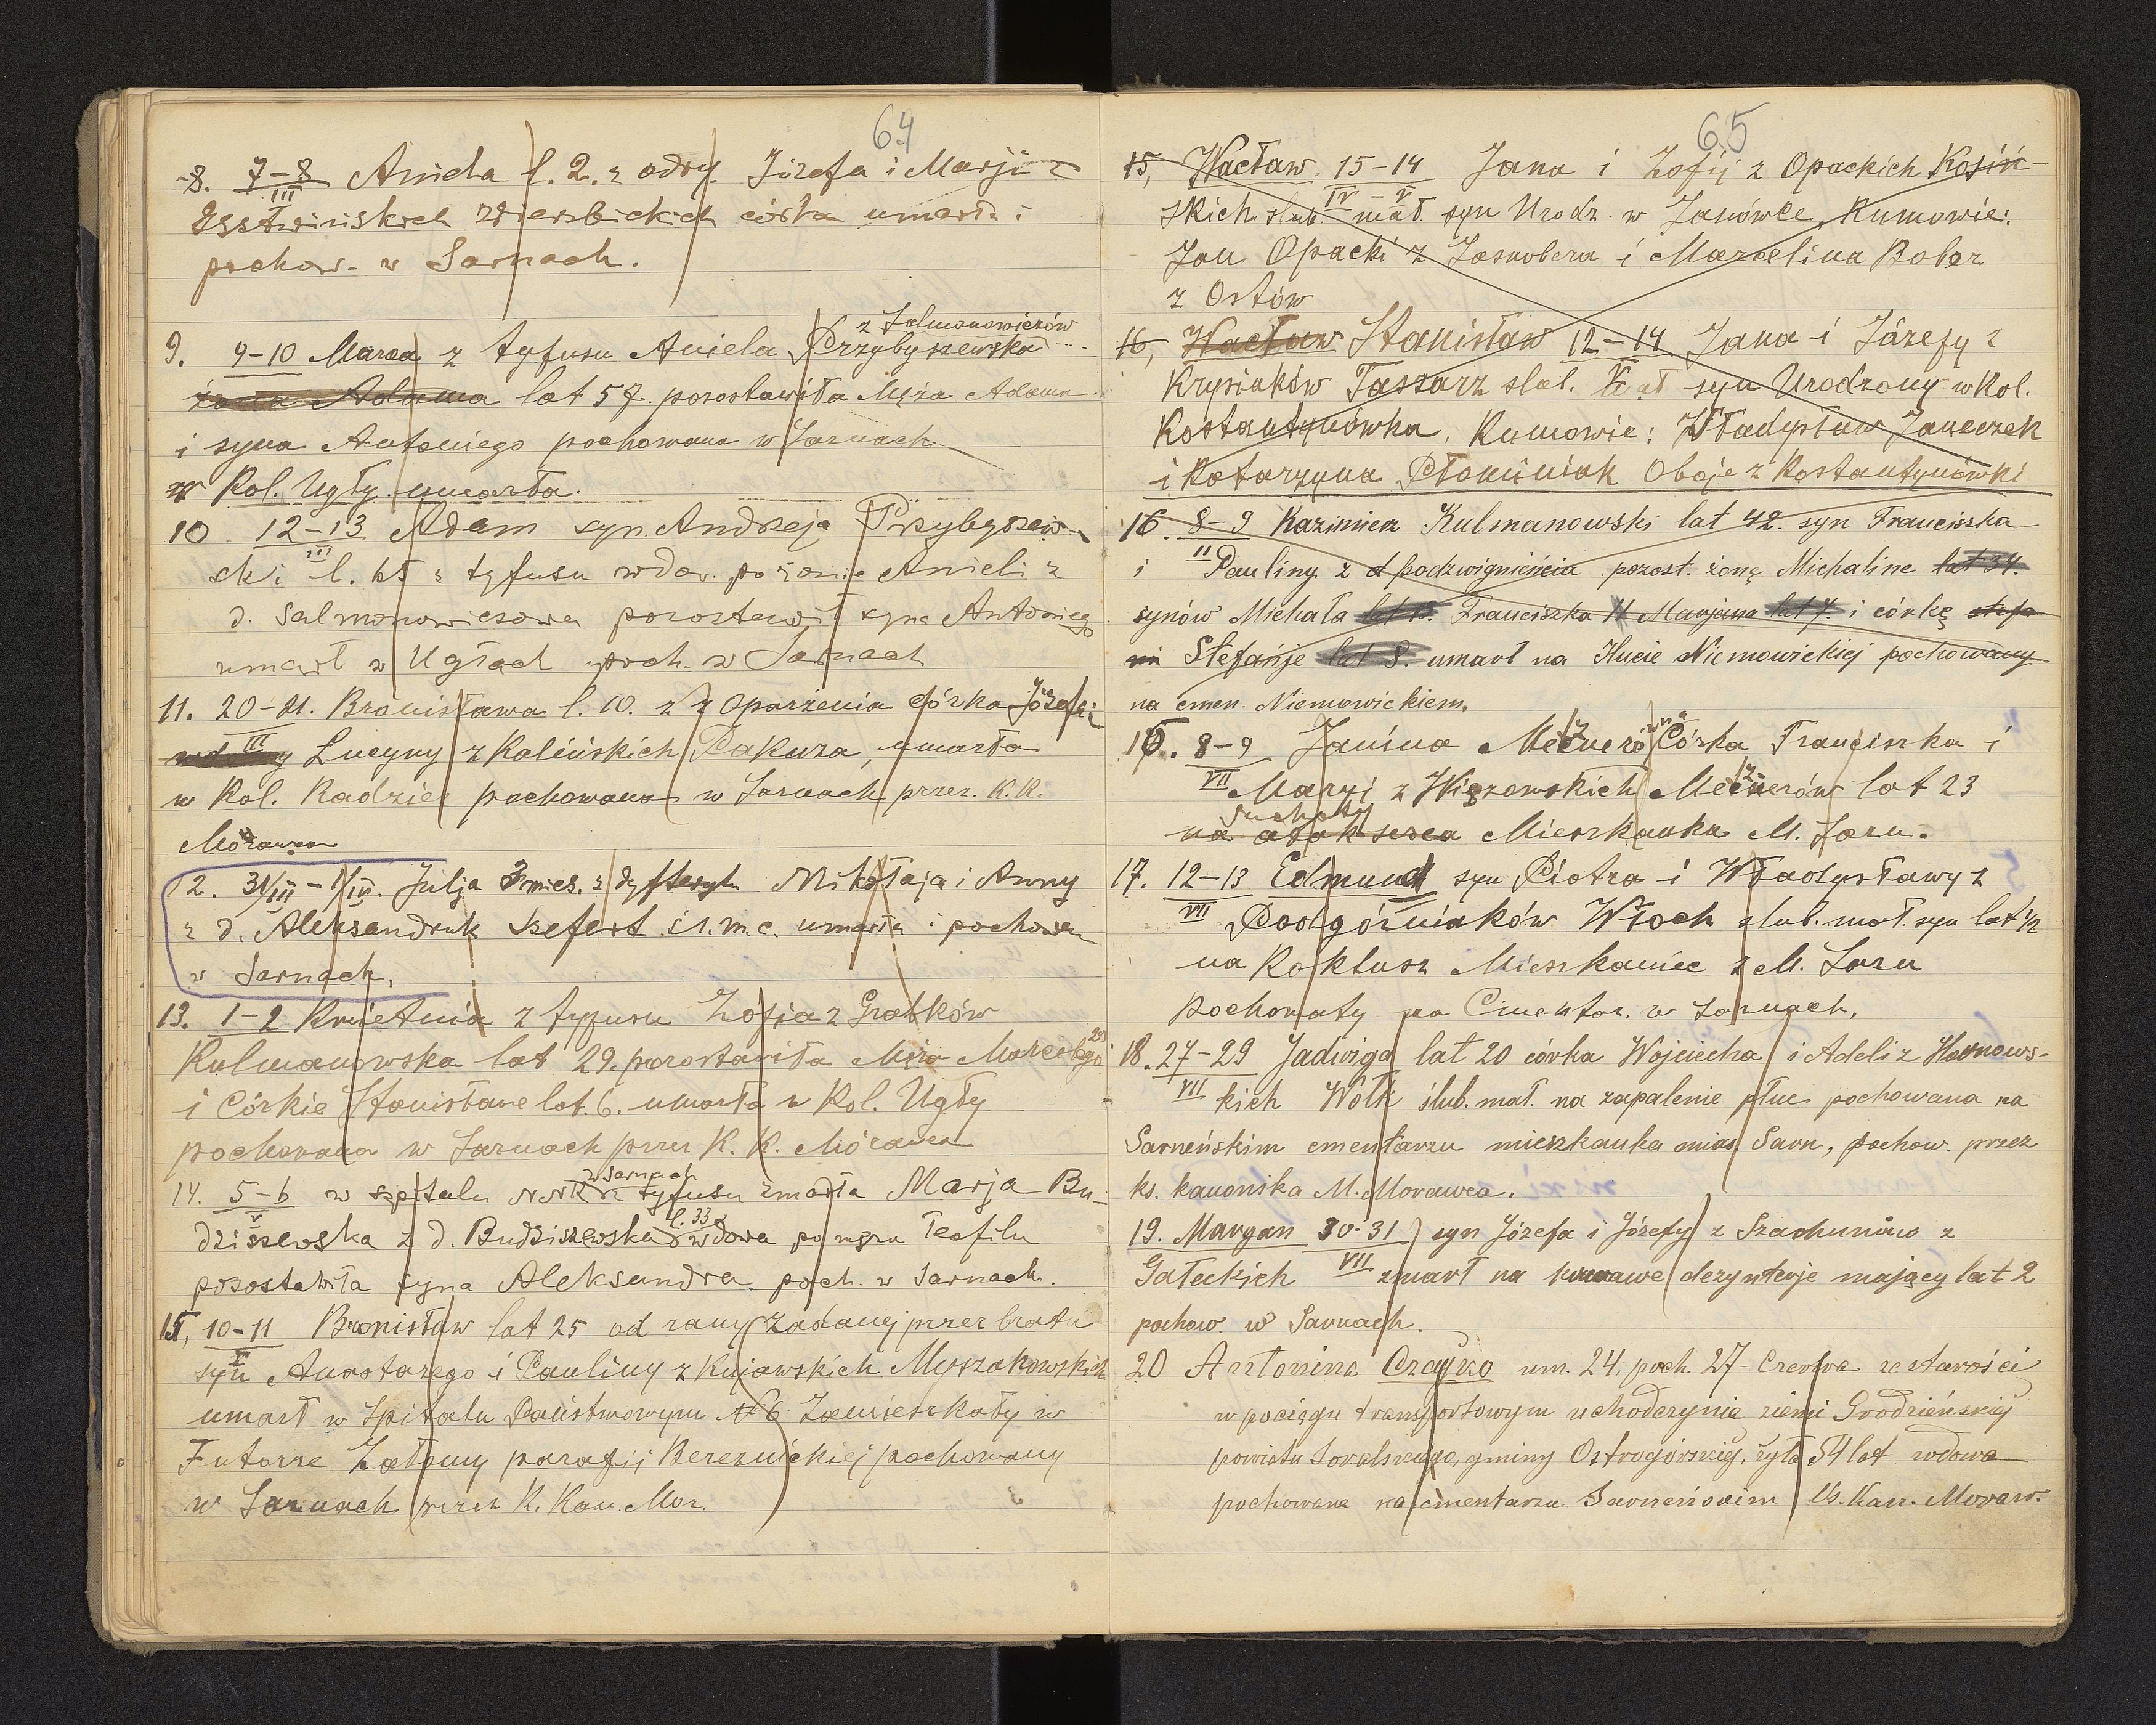 64
8. 7-8 Aniela l. 2. z odry Józefa i Marji z
III
Wierzbickich córka umarła i
pochow. w Sarnach.
z Salmonowiczów
9. 9-10 Marca z tyfusu Aniela Przybyszewska
żona Adama lat 57. pozostawiła Męża Adama
i syna Antoniego pochowana w Sarnach
w Kol. Ugły umarła.
10. 12-13 Adam syn Andrzeja Przybyszew-
III
ski l. 65 z tyfusu wdow. po żonie Anieli z
d. Salmonowiczowa pozostawił syna Antoniego
umarł w Ugłach poch. w Sarnach
11. 20-21. Bronisława l. 10. z oparzenia córka Józefa i
III
Lucyny z Kalińskich Pakuza, umarła
w Kol. Radzież pochowana w Sarnach przez K. K.
Morawca
12. 31/III - 1/IV. Julja 3 mies. z dyfteryt. Mikołaja i Anny
z d. Aleksandruk Szefert ś. r. m. c. umarła i pochowan
w Sarnach.
13. 1-2 Kwietnia z tyfusu Zofja z Grabków
Kulmanowska lat 29. pozostawiła Męża Marcelego
i Córkie Stanisławe lat. 6. umarła w Kol. Ugły
pochowana w Sarnach przez K. K. Morawca
w Sarnach
14. 5-6 w szpitalu z tyfusu zmarła Marja Bu-
V
l. 33
dziszewska z d. Budziszewska wdowa po mężu Teofilu
pozostawiła syna Aleksandra. poch. w Sarnach.
15, 10-11 Bronisław lat 25 od rany zadanej przez brata
V
syn Anastazego i Pauliny z Kujawskich Myszakowskich
umarł w Szpitalu Państwowym № 6 Zamieszkały w
Futorze Załomy parafij Bereznickiej pochowany
w Sarnach przez K. Kan. Mor.
65
15, Wacław 15-14 Jana i Zofij z Opackich Kosiń-
IV V
skich slub mał. syn Urodz. w Janówce, Kumowie:
Jan Opacki z Jasnobera i Marcelina Bober
z Ostów
16, Wacław Stanisław 12-14 Jana i Józefy z
Krysiaków Taszarz slab. mał syn Urodzony w Kol.
Kostantynówka, Kumowie: Władysław Janeczek
i Katarzyna Płoniniak Oboje z Kostantynówki
16. 8-9 Kazimierz Kulmanowski lat 42. syn Franciszka
II
i Pauliny z podzwignięcia pozost. żonę Michaline lat 34.
synów Michała lat 13. Franciszka 11 Marjana lat 7. i córkę stefa
Stefańje lat 8. umarł na Hucie Niemowickiej pochowany
na cmen. Niemowickiem.
16. 8-9 Janina Meznerówna Córka Franciszka i
VII
Maryi z Wiązowskich Meznerów lat 23
Suchoty
na atak serca Mieszkanka M. Sarn.
17. 12-13 Edmund syn Piotra i Władysławy z
VII
Podgórniaków Włoch slub. mał. syn lat 1/2
na Koklusz Mieszkaniec z M. Sarn
pochowaty na Cmentar. w Sarnach.
18. 27-29 Jadwiga lat 20 córka Wojciecha i Adeli z Hornows-
VII
kich Wołk ślub. mał. na zapalenie płuc pochowana na
Sarneńskim cmentarzu mieszkanka mias. Sarn, pochow. przez
ks. kanonika M. Morawca.
19. Maryan 30-31 syn Józefa i Józefy z Szachuniów z
VII
Gałeckich zmarł na krwawe dezynterje mający lat 2
pochow. w Sarnach.
20 Antonina Czayko um. 24. poch. 27 - Czerwca ze starości
w pociągu transportowym uchodczynia ziemi Grodzieńskiej
powiatu Sokolskiego, gminy Ostrogórskiej, żyła 54 lat wdowa
pochowana na cmentarzu Sarneńskim Ks. Kan. Moraw.